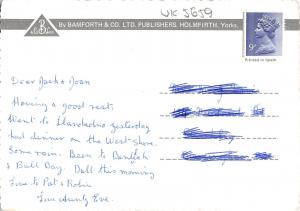 UK 5659
By BAMFORTH & CO. LTD. PUBLISHERS, HOLMFIRTH, Yorks.
9P
Printed in Spain
Dear Jack & Joan
Having a good rest.
Went to Llandudno yesterday
had dinner on the West Shore.
Some rain. Been to
& Bull Bay. Dull this morning
Love to Pat & Robin
Love Aunty Eve.